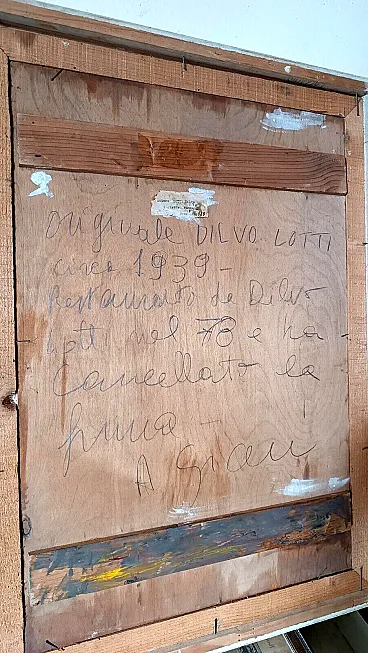 Originale DILVO LOTTI
circa 1939 -
Restaurato da Dilvo
Lotti nel 78 e ha
Cancellato la
firma -
A